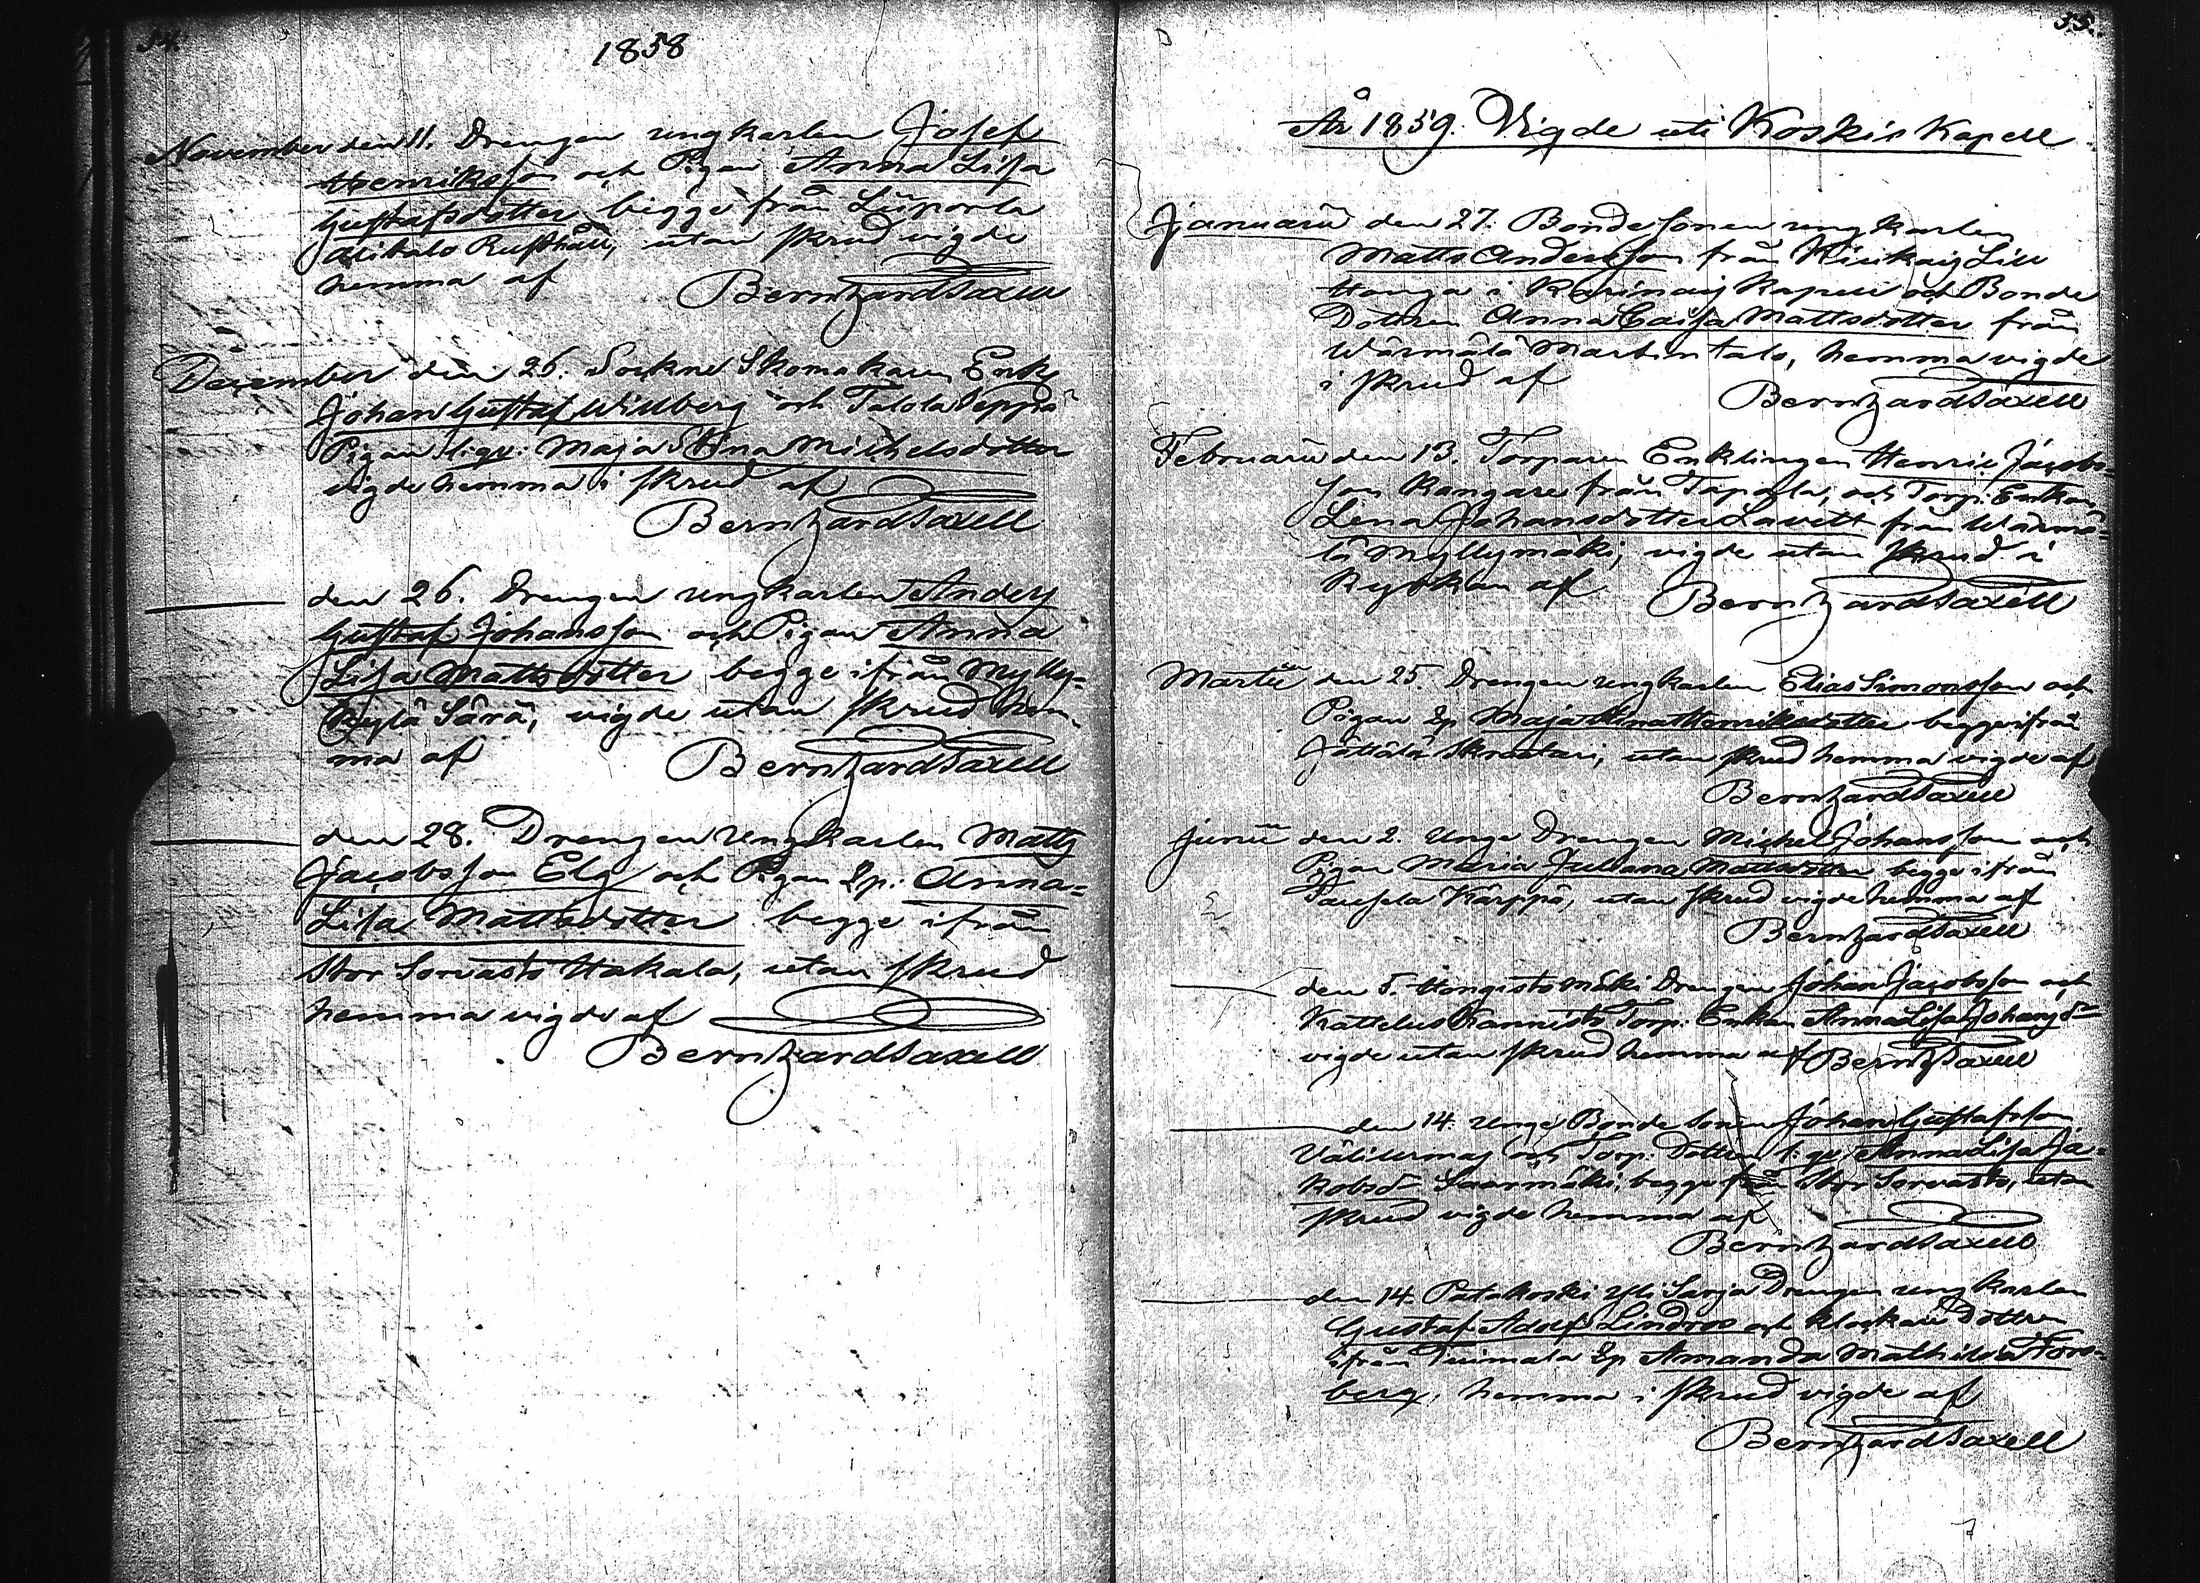 54.
1858
November den 11. Drengen ungkarlen Josef
Henriksson och Pigan Anna Lisa
Gustafsdotter begge från Liipola
Alikalo Rusthåll, utan skrud vigde
hemma af
Bernhard Saxell
December den 26. Sockne Skomakaren Enkl.
Johan Gustaf Willberg och Talola Seppä
Pigan Maja Stina Michelsdotter
vigde hemma i skrud af
Bernhard Saxell
den 26. Drengen ungkarlen Anders
Gustaf Johansson och Pigan Anna
Lisa Mattsdotter begge ifrån Mylly-
kylä Särä, vigde utan skrud hem-
ma af
Bernhard Saxell
den 28. Drengen Ungkarlen Matts
Jacobsson Elg och Pigan Ep. Anna-
Lisa Mattsdotter begge ifrån
Stor Sorvasto Hakala, utan skrud
hemma vigde af
Bernhard Saxell
55.
År 1859. Vigde uti Koskis Kapell
Januarii den 27. Bondesonen ungkarlen
Matts Andersson från Lill
Honga i Karinais Kapell och Bonde
Dottren Anna Caisa Mattsdotter från
Wärmälä Martintalo, hemma vigde
i skrud af
Bernhard Saxell
Februarii den 13. Torparen Enklingen Henric Jacobs-
son Kangare från Tapala, och Torp. Enkan
Lena Johansdotter Lavett från Wärmä-
lä Myllymäki, vigde utan skrud i
Kyrkan af
Bernhard Saxell
Martii den 25. Drengen ungkarlen Elias Simonsson och
Pigan Ep Maja Stina Henriksdotter begge ifrån
Jättälä utan skrud hemma vigde af
Bernhard Saxell
Junii den 2. Unge Drengen Michel Johansson och
Pigan Maria Juliana Mattsdotter begge ifrån
Kärppä, utan skrud vigde hemma af
Bernhard Saxell
den 5. Hongisto Mäki Drengen Johan Jacobsson och
Kattelus Kannisto Torp. Enkan Anna Lisa Johansdr
vigde utan skrud hemma af Bernh Saxell
den 14. Unge Bonde Sonen Johan Gustafsson
och Torp. Dottren Anna Lisa Ja-
kobsd. Saarimäki, begge från Stor Sorvasto, utan
skrud vigde hemma af
Bernhard Saxell
den 14. Patakoski Yli Sarja Drengen ungkarlen
Gustaf Adolf Lindros och Klockare Dottren
ifrån Tuimala Ep Amanda Mathilda Fors-
berg, hemma i skrud vigde af
Bernhard Saxell